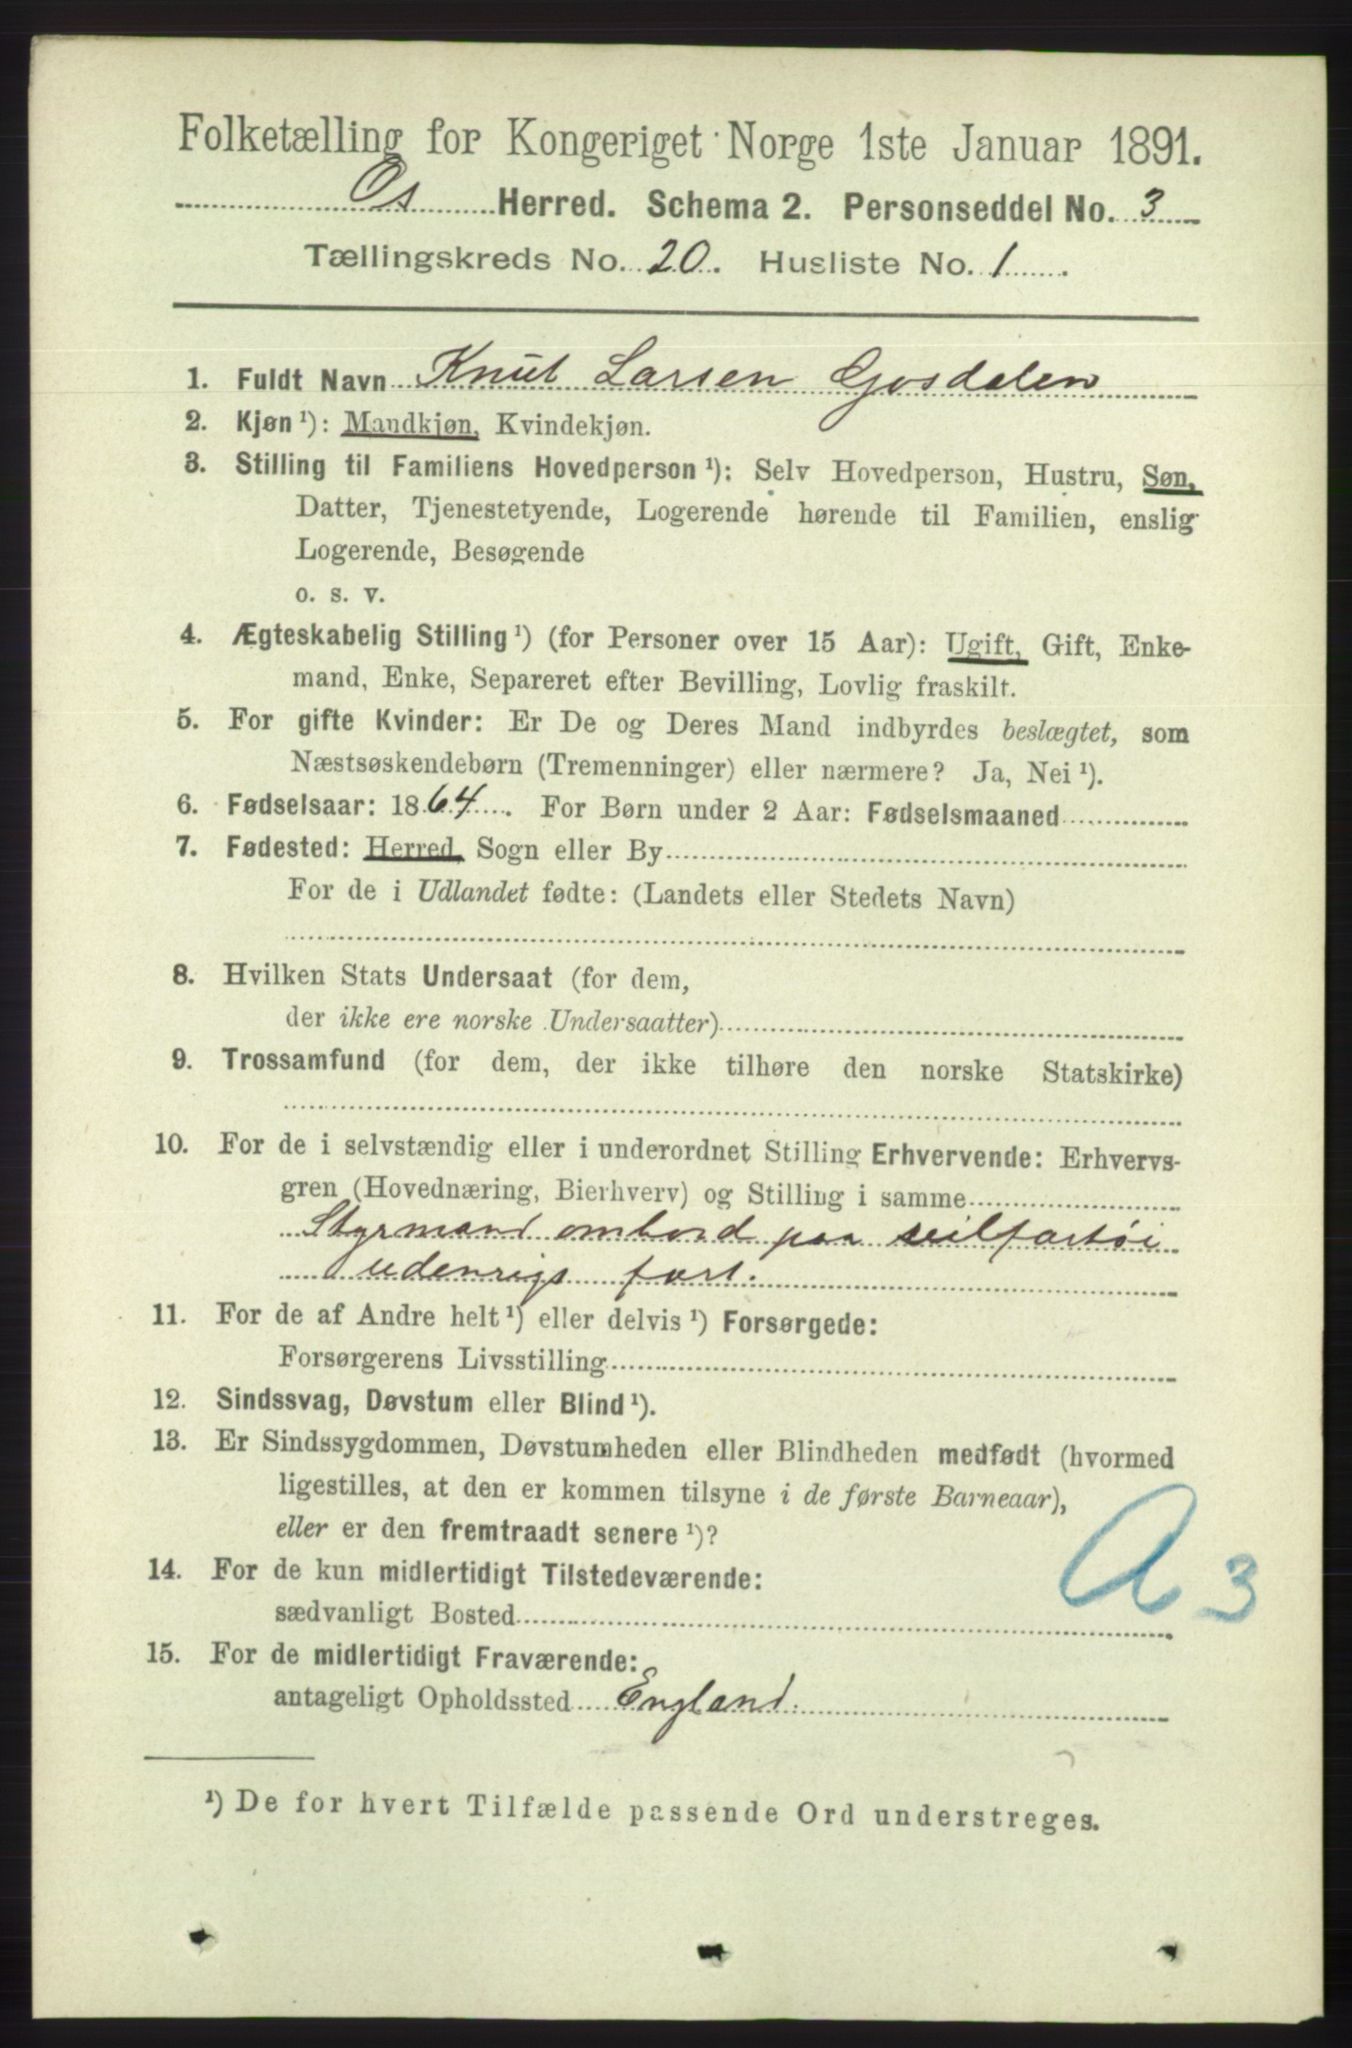 Folketælling for Kongeriget Norge 1ste Januar 1891.
Os Herred. Schema 2. Personseddel No. 3
Tællingskreds No. 20. Husliste No. 1
1. Fuldt Navn Knut Larsen Gosdalen
2. Kjøn ¹): Mandkjøn, Kvindekjøn.
3. Stilling til Familiens Hovedperson ¹): Selv Hovedperson, Hustru, Søn,
Datter, Tjenestetyende, Logerende hørende til Familien, enslig
Logerende, Besøgende
o. s. v.
4. Ægteskabelig Stilling ¹) (for Personer over 15 Aar): Ugift, Gift, Enke-
mand, Enke, Separeret efter Bevilling, Lovlig fraskilt.
5. For gifte Kvinder: Er De og Deres Mand indbyrdes beslægtet, som
Næstsøskendebørn (Tremenninger) eller nærmere? Ja, Nei ¹).
6. Fødselsaar: 1864. For Børn under 2 Aar: Fødselsmaaned
7. Fødested: Herred, Sogn eller By
For de i Udlandet fødte: (Landets eller Stedets Navn)
8. Hvilken Stats Undersaat (for dem,
der ikke ere norske Undersaatter)
9. Trossamfund (for dem, der ikke tilhøre den norske Statskirke)
10. For de i selvstændig eller i underordnet Stilling Erhvervende: Erhvervs-
gren (Hovednæring, Bierhverv) og Stilling i samme
Styrmand ombord paa seilfartöi
udenrigs fart.
11. For de af Andre helt ¹) eller delvis ¹) Forsørgede:
Forsørgerens Livsstilling
12. Sindssvag, Døvstum eller Blind ¹).
13. Er Sindssygdommen, Døvstumheden eller Blindheden medfødt (hvormed
ligestilles, at den er kommen tilsyne i de første Barneaar),
eller er den fremtraadt senere ¹)?
14. For de kun midlertidigt Tilstedeværende:
sædvanligt Bosted
A 3
15. For de midlertidigt Fraværende:
antageligt Opholdssted England.
¹) De for hvert Tilfælde passende Ord understreges.